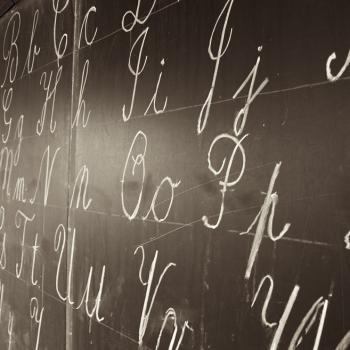 B b C c D
G g H h I i J j
M m N n O o P p
S T t U u V v
Y y